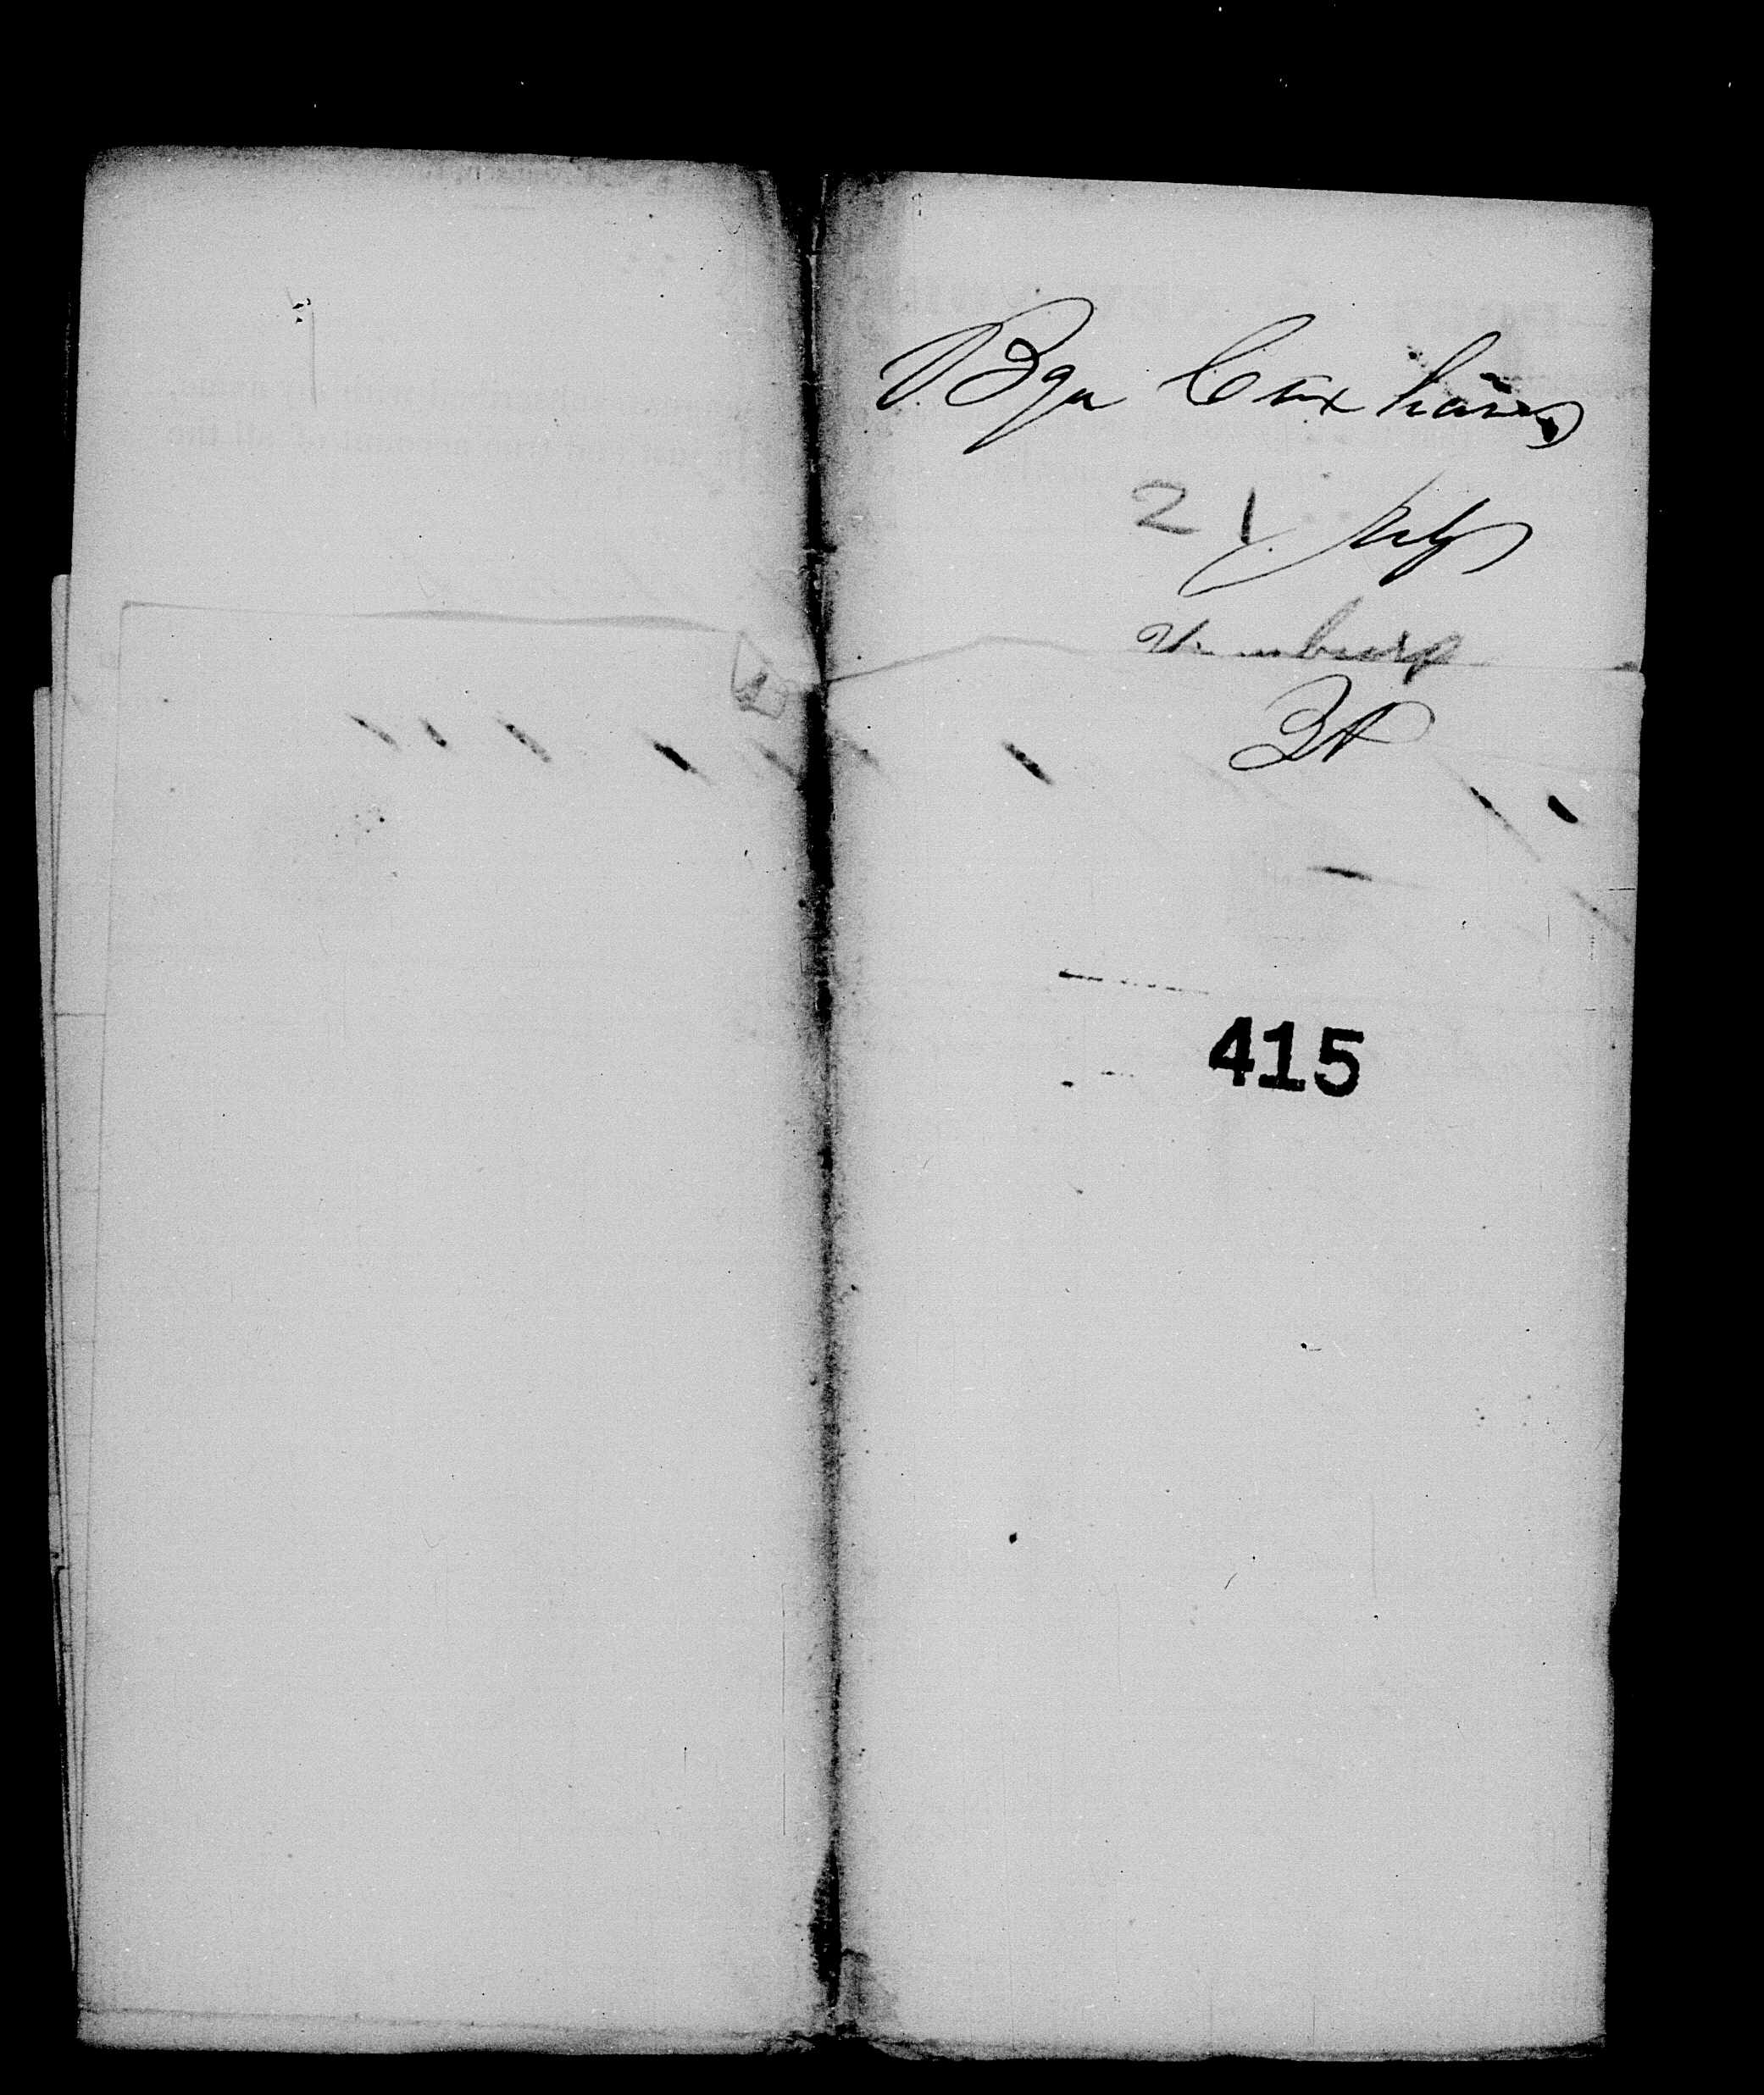 Bqu Cuxhaven
21 July
Hamburg
415